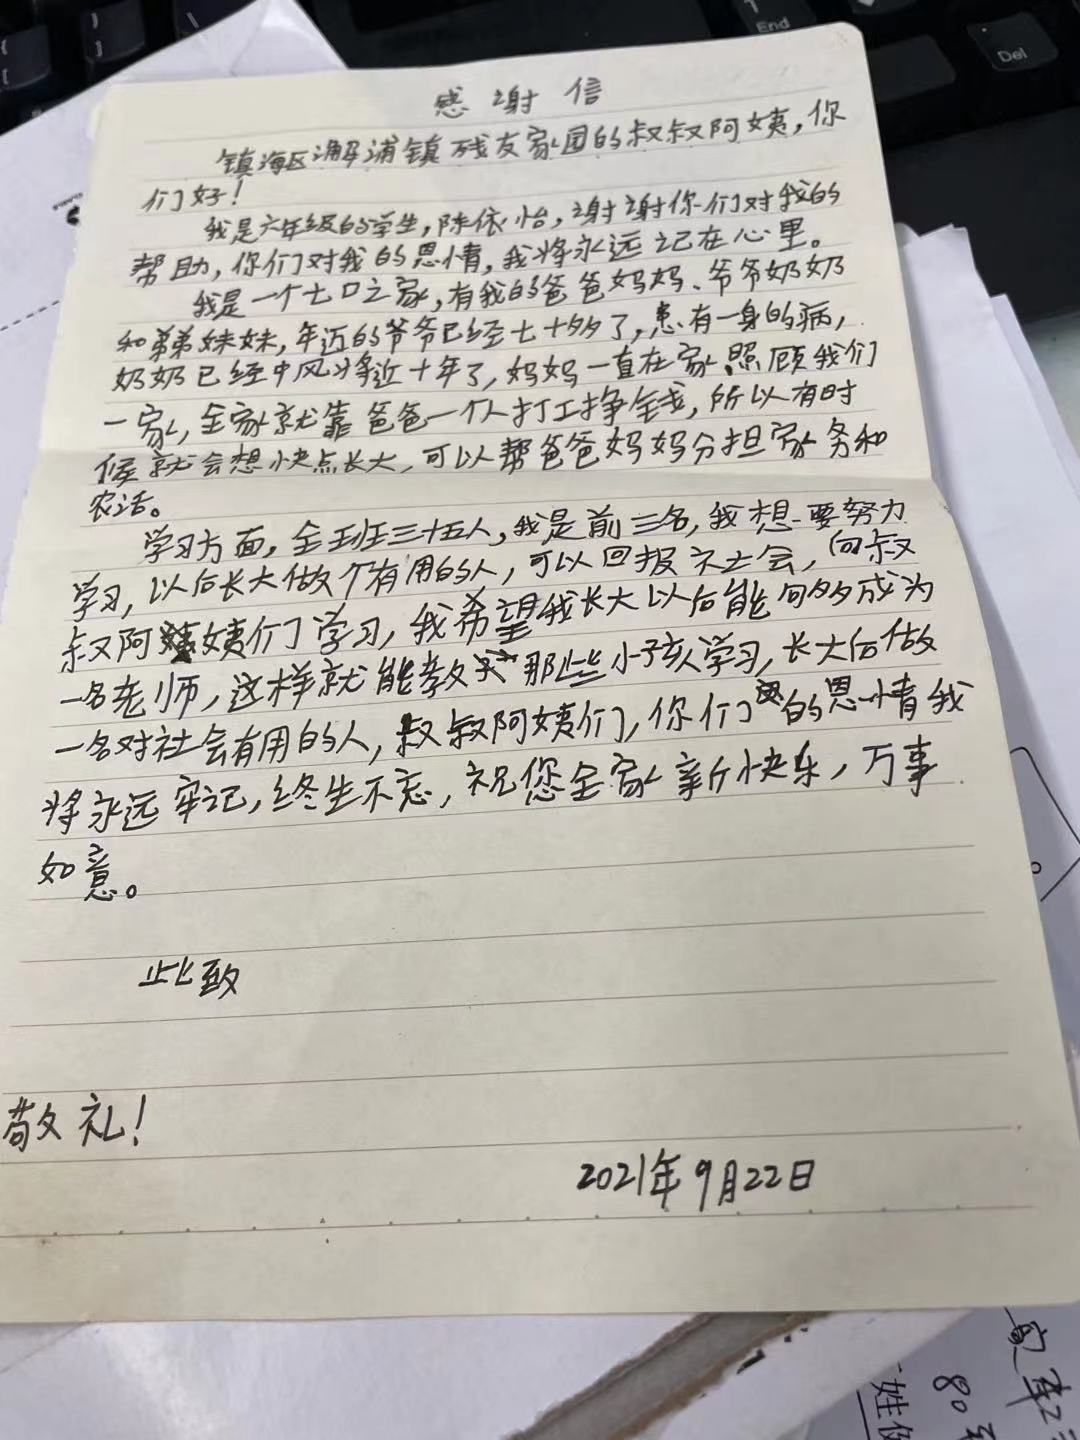 End
Del
感谢信
镇海区澥浦镇残友家园的叔叔阿姨，你
们好！
我是六年级的学生，陈依怡，谢谢你们对我的
帮助，你们对我的恩情，我将永远记在心里。
我是一个七口之家，有我的爸爸妈妈、爷爷奶奶
和弟弟妹妹，年迈的爷爷已经七十多了，患有一身的病，
奶奶已经中风将近十年了，妈妈一直在家照顾我们
一家，全家就靠爸爸一个人打工挣钱，所以有时
候就会想快点长大，可以帮爸爸妈妈分担家务和
农活。
学习方面，全班三十五人，我是前三名，我想要努力
学习，以后长大做个有用的人，可以回报社会，向叔
叔阿姨们学习，我希望我长大以后能够成为
一名老师，这样就能教那些小孩学习，长大后做
一名对社会有用的人，叔叔阿姨们，你们的恩情我
将永远牢记，终生不忘，祝您全家新快乐，万事
如意。
此致
敬礼！
2021年9月22日
80
姓